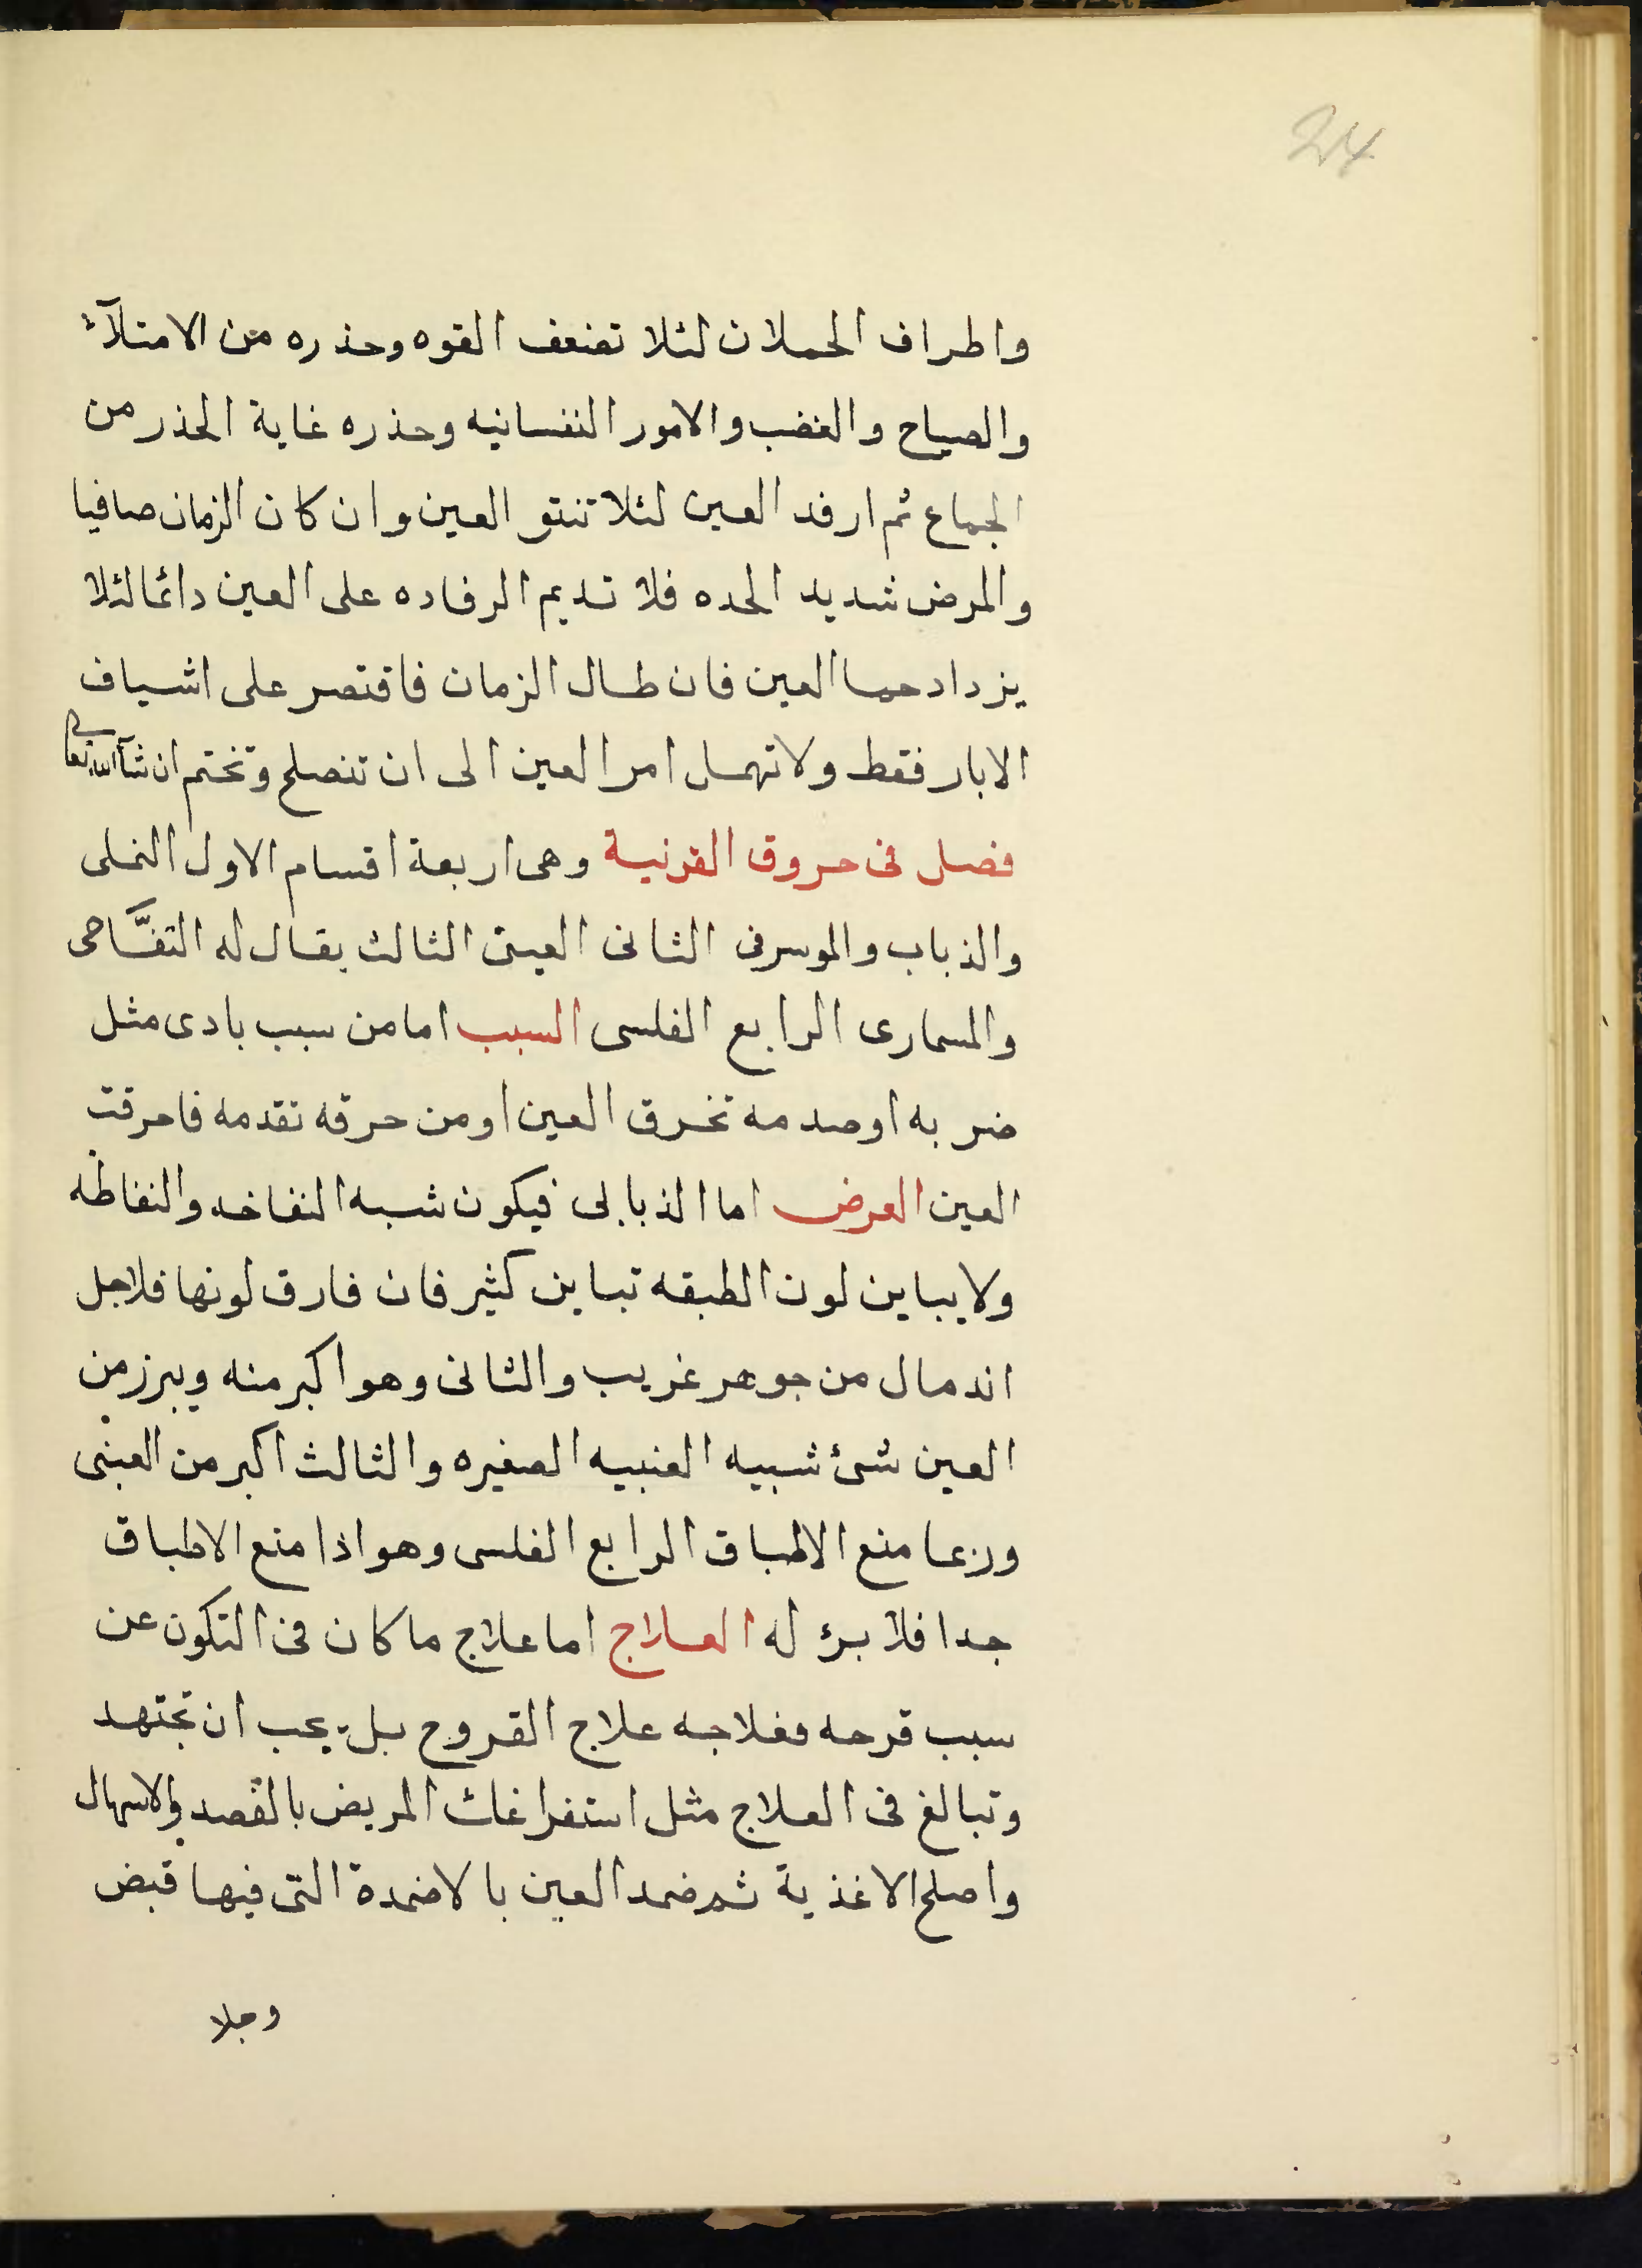 24
واطراف الحملان لئلا تضعف القوه وحذره من الامتلآئ
والصياح والغضب والامور النفسانيه وحذره غاية الحذر من
الجماع ثم ارفد العين لئلا تنتو العين وان كان الزمان صافيا
والمرض شديد الحده فلا تديم الرفاده على العين دائما لئلا
يزداد حما العين فان طال الزمان فاقتصر على اشياف
الابار فقط ولا تهمل امر العين الى ان تنصلح وتختم ان شآ الله تعالى
فصل فى حروق القرنية وهى اربعة اقسام الاول النملى
والذباب والموسرفى الثانى العينى الثالث يقال له التفَّاحى
والمسمارى الرابع الفلسى السبب اما من سبب بادى مثل
ضربه او صدمه تخرق العين او من حرقه تقدمه فاحرقت
العين العرض اما الذبابى فيكون شبه النفاخه والنفاطه
ولا يباين لون الطبقه تباين كثير فان فارق لونها فلاجل
اندمال من جوهر غريب والثانى وهو اكبر منه ويبرز من
العين شئ شبيه العنبيه الصغيره والثالث اكبر من العبنى
وربما منع الاطباق الرابع الفلسى وهو اذا منع الاطباق
جدا فلا برئ له العلاج اما علاج ما كان فى التكون عن
سبب قرحه فعلاجه علاج القروح بل يجب ان تجتهد
وتبالغ فى العلاج مثل استفراغات المريض بالفصد والاسهال
واصلح الاغذية ثم ضمد العين بالاضمدة التى فيها قبض
وجلا